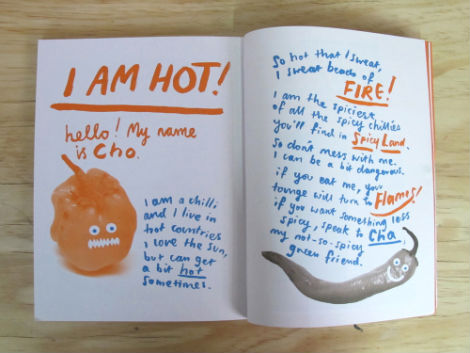 I AM HOT!
hello! My name
is Cho.
I am a chilli
and I live in
hot countries
I love the sun,
but can get
a bit hot
sometimes.
So hot that I sweat,
I sweat beads of
FIRE!
I am the spiciest
of all the spicy chillies
you'll find in Spicy Land.
So don't mess with me.
I can be a bit dangerous.
if you eat me, your
tounge will turn to Flames!
if you want something less
spicy, speak to Cha,
my not-so-spicy
green friend.